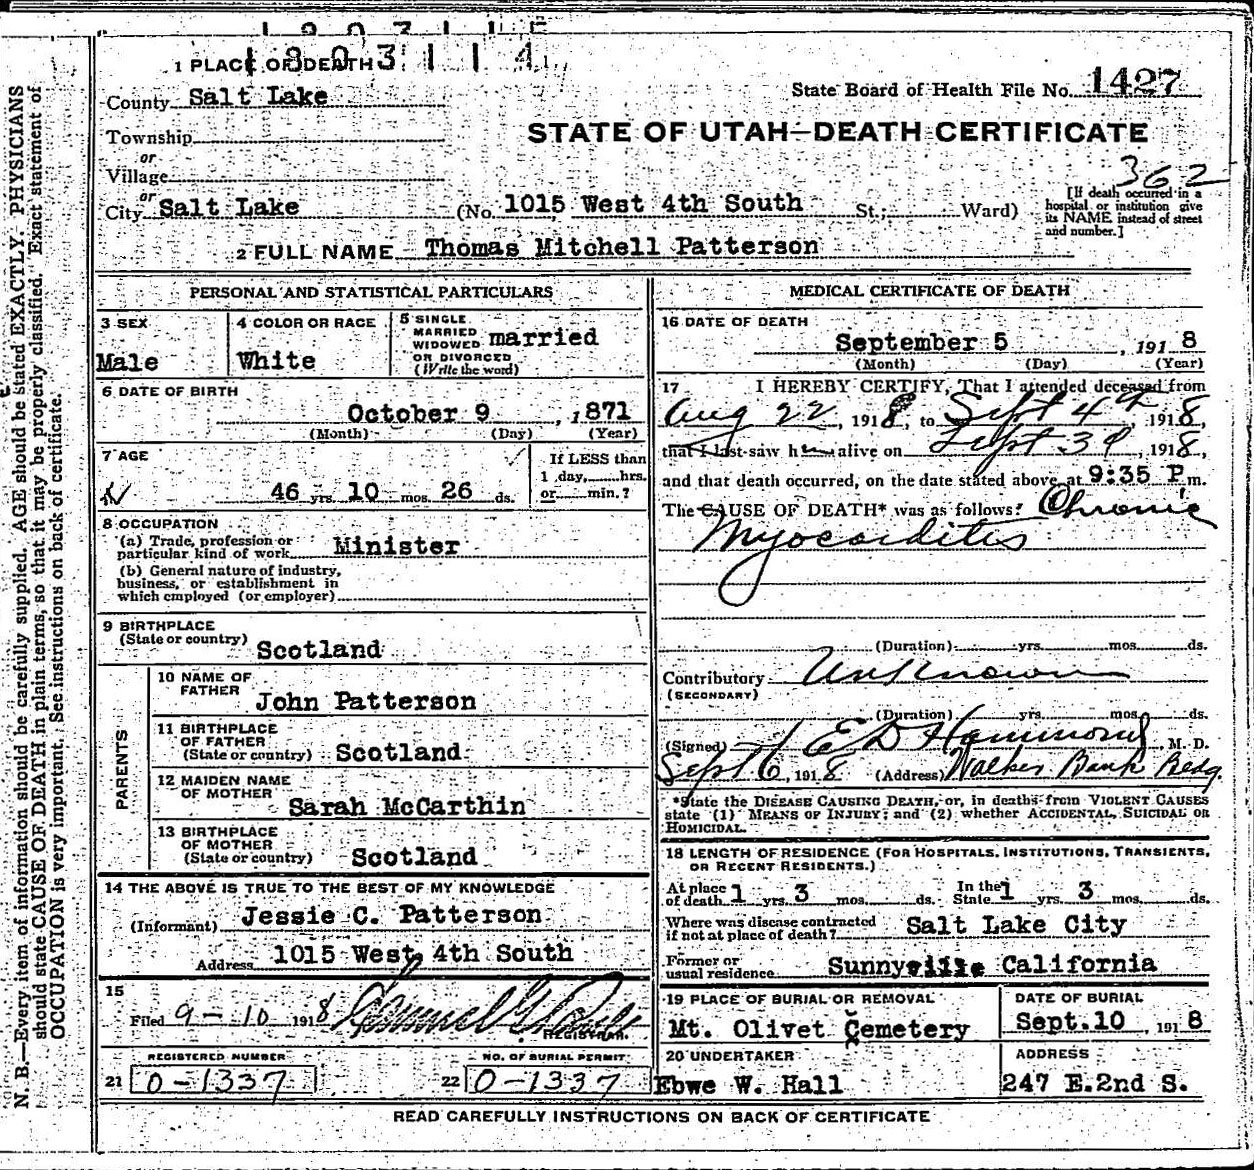 1803114
1 PLACE OF DEATH
County Salt Lake
State Board of Health File No. 1427
Township
STATE OF UTAH—DEATH CERTIFICATE
or
Village
or
362
City Salt Lake (No. 1015 West 4th South St.; Ward)
[If death occurred in a
hospital or institution give
its NAME instead of street
and number.]
2 FULL NAME Thomas Mitchell Patterson
PERSONAL AND STATISTICAL PARTICULARS
3 SEX
Male
4 COLOR OR RACE
White
5 SINGLE
MARRIED
WIDOWED married
OR DIVORCED
(Write the word)
6 DATE OF BIRTH
October 9, 1871
(Month) (Day) (Year)
7 AGE
46 yrs. 10 mos. 26 ds.
If LESS than
1 day, hrs.
or min.?
8 OCCUPATION
(a) Trade, profession or
particular kind of work Minister
(b) General nature of industry,
business, or establishment in
which employed (or employer)
9 BIRTHPLACE
(State or country) Scotland
PARENTS
10 NAME OF
FATHER John Patterson
11 BIRTHPLACE
OF FATHER
(State or country) Scotland
12 MAIDEN NAME
OF MOTHER
Sarah McCarthin
13 BIRTHPLACE
OF MOTHER
(State or country) Scotland
14 THE ABOVE IS TRUE TO THE BEST OF MY KNOWLEDGE
(Informant) Jessie C. Patterson
Address 1015 West 4th South
15
Filed 9-10 1918
REGISTRAR.
REGISTERED NUMBER
21 0-1337
NO. OF BURIAL PERMIT
22 0-1337
MEDICAL CERTIFICATE OF DEATH
16 DATE OF DEATH
September 5, 1918
(Month) (Day) (Year)
17 I HEREBY CERTIFY, That I attended deceased from
Aug 22, 1918, to Sept 4th, 1918,
that I last saw him alive on Sept 3d, 1918,
and that death occurred, on the date stated above, at 9:35 P.m.
The CAUSE OF DEATH* was as follows: Chronic
Myocarditis
(Duration) yrs. mos. ds.
Contributory Unknown
(SECONDARY)
(Duration) yrs. mos. ds.
(Signed) E D Hammond, M. D.
Sept 6, 1918 (Address) Walker Bank Bldg.
*State the DISEASE CAUSING DEATH, or, in deaths from VIOLENT CAUSES
state (1) MEANS OF INJURY; and (2) whether ACCIDENTAL, SUICIDAL OR
HOMICIDAL.
18 LENGTH OF RESIDENCE (FOR HOSPITALS, INSTITUTIONS, TRANSIENTS,
OR RECENT RESIDENTS.)
At place
of death 1 yrs. 3 mos. ds.
In the
State 1 yrs. 3 mos. ds.
Where was disease contracted
if not at place of death? Salt Lake City
Former or
usual residence California
19 PLACE OF BURIAL OR REMOVAL
Mt. Olivet Cemetery
DATE OF BURIAL
Sept.10, 1918
20 UNDERTAKER
Ebwe W. Hall
ADDRESS
247 E.2nd S.
READ CAREFULLY INSTRUCTIONS ON BACK OF CERTIFICATE
N. B.—Every item of information should be carefully supplied. AGE should be stated EXACTLY. PHYSICIANS
should state CAUSE OF DEATH in plain terms, so that it may be properly classified. Exact statement of
OCCUPATION is very important. See instructions on back of certificate.